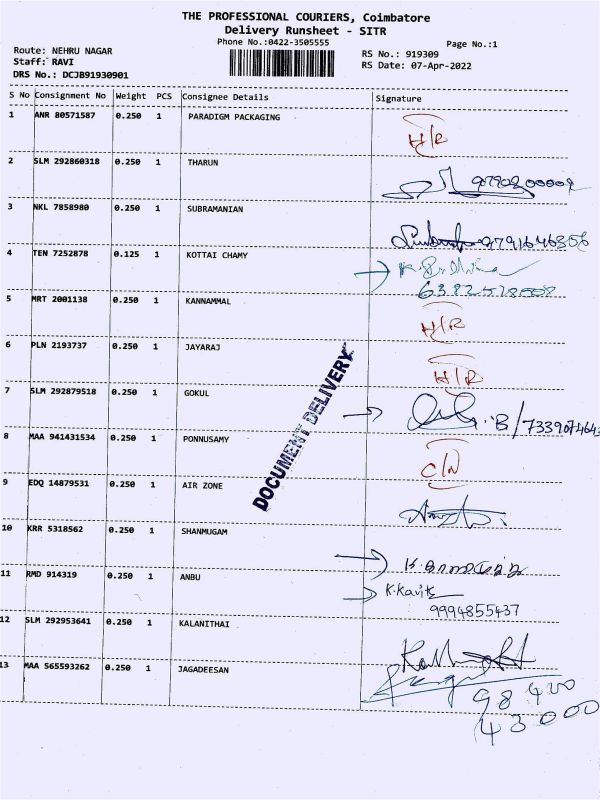 THE PROFESSIONAL COURIERS, Coimbatore
Delivery Runsheet - SITR
Phone No.:0422-3505555
Page No.:1
Route: NEHRU NAGAR
RS No.: 919309
Staff: RAVI
RS Date: 07-Apr-2022
DRS No.: DCJB91930901
S No Consignment No Weight PCS Consignee Details Signature
1 ANR 80571587 0.250 1 PARADIGM PACKAGING
2 SLM 292860318 0.250 1 THARUN
3 NKL 7858980 0.250 1 SUBRAMANIAN
9791646356
4 TEN 7252878 0.125 1 KOTTAI CHAMY
5 MRT 2001138 0.250 1 KANNAMMAL
6 PLN 2193737 0.250 1 JAYARAJ
7 SLM 292879518 0.250 1 GOKUL
DOCUMENT DELIVERY
8 MAA 941431534 0.250 1 PONNUSAMY
9 EDQ 14879531 0.250 1 AIR ZONE
10 KRR 5318562 0.250 1 SHANMUGAM
11 RMD 914319 0.250 1 ANBU
K.Kavitc
9994855437
12 SLM 292953641 0.250 1 KALANITHAI
13 MAA 565593262 0.250 1 JAGADEESAN
98 420
43000